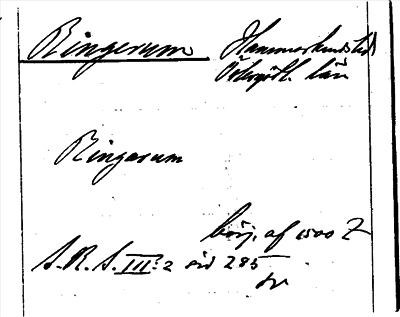 Ringerum Hammarkinds hd
Östergötl. län
Ringarum
börj. af 1500 T
S.R.S. III:2 sid 285